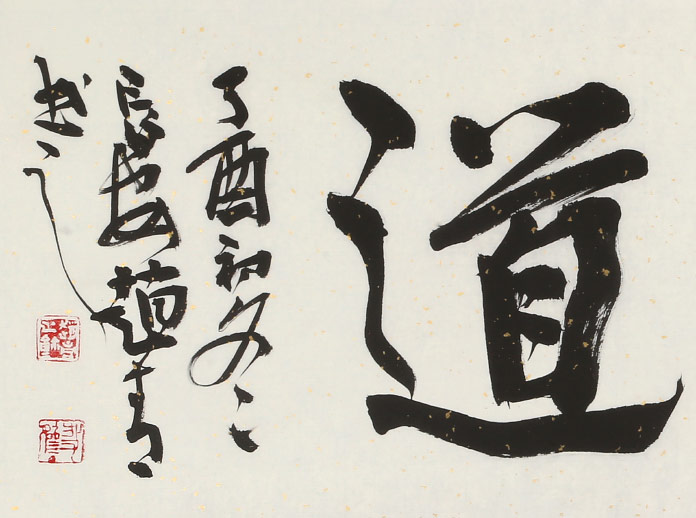 道
丁酉初冬
長安趙青
書之